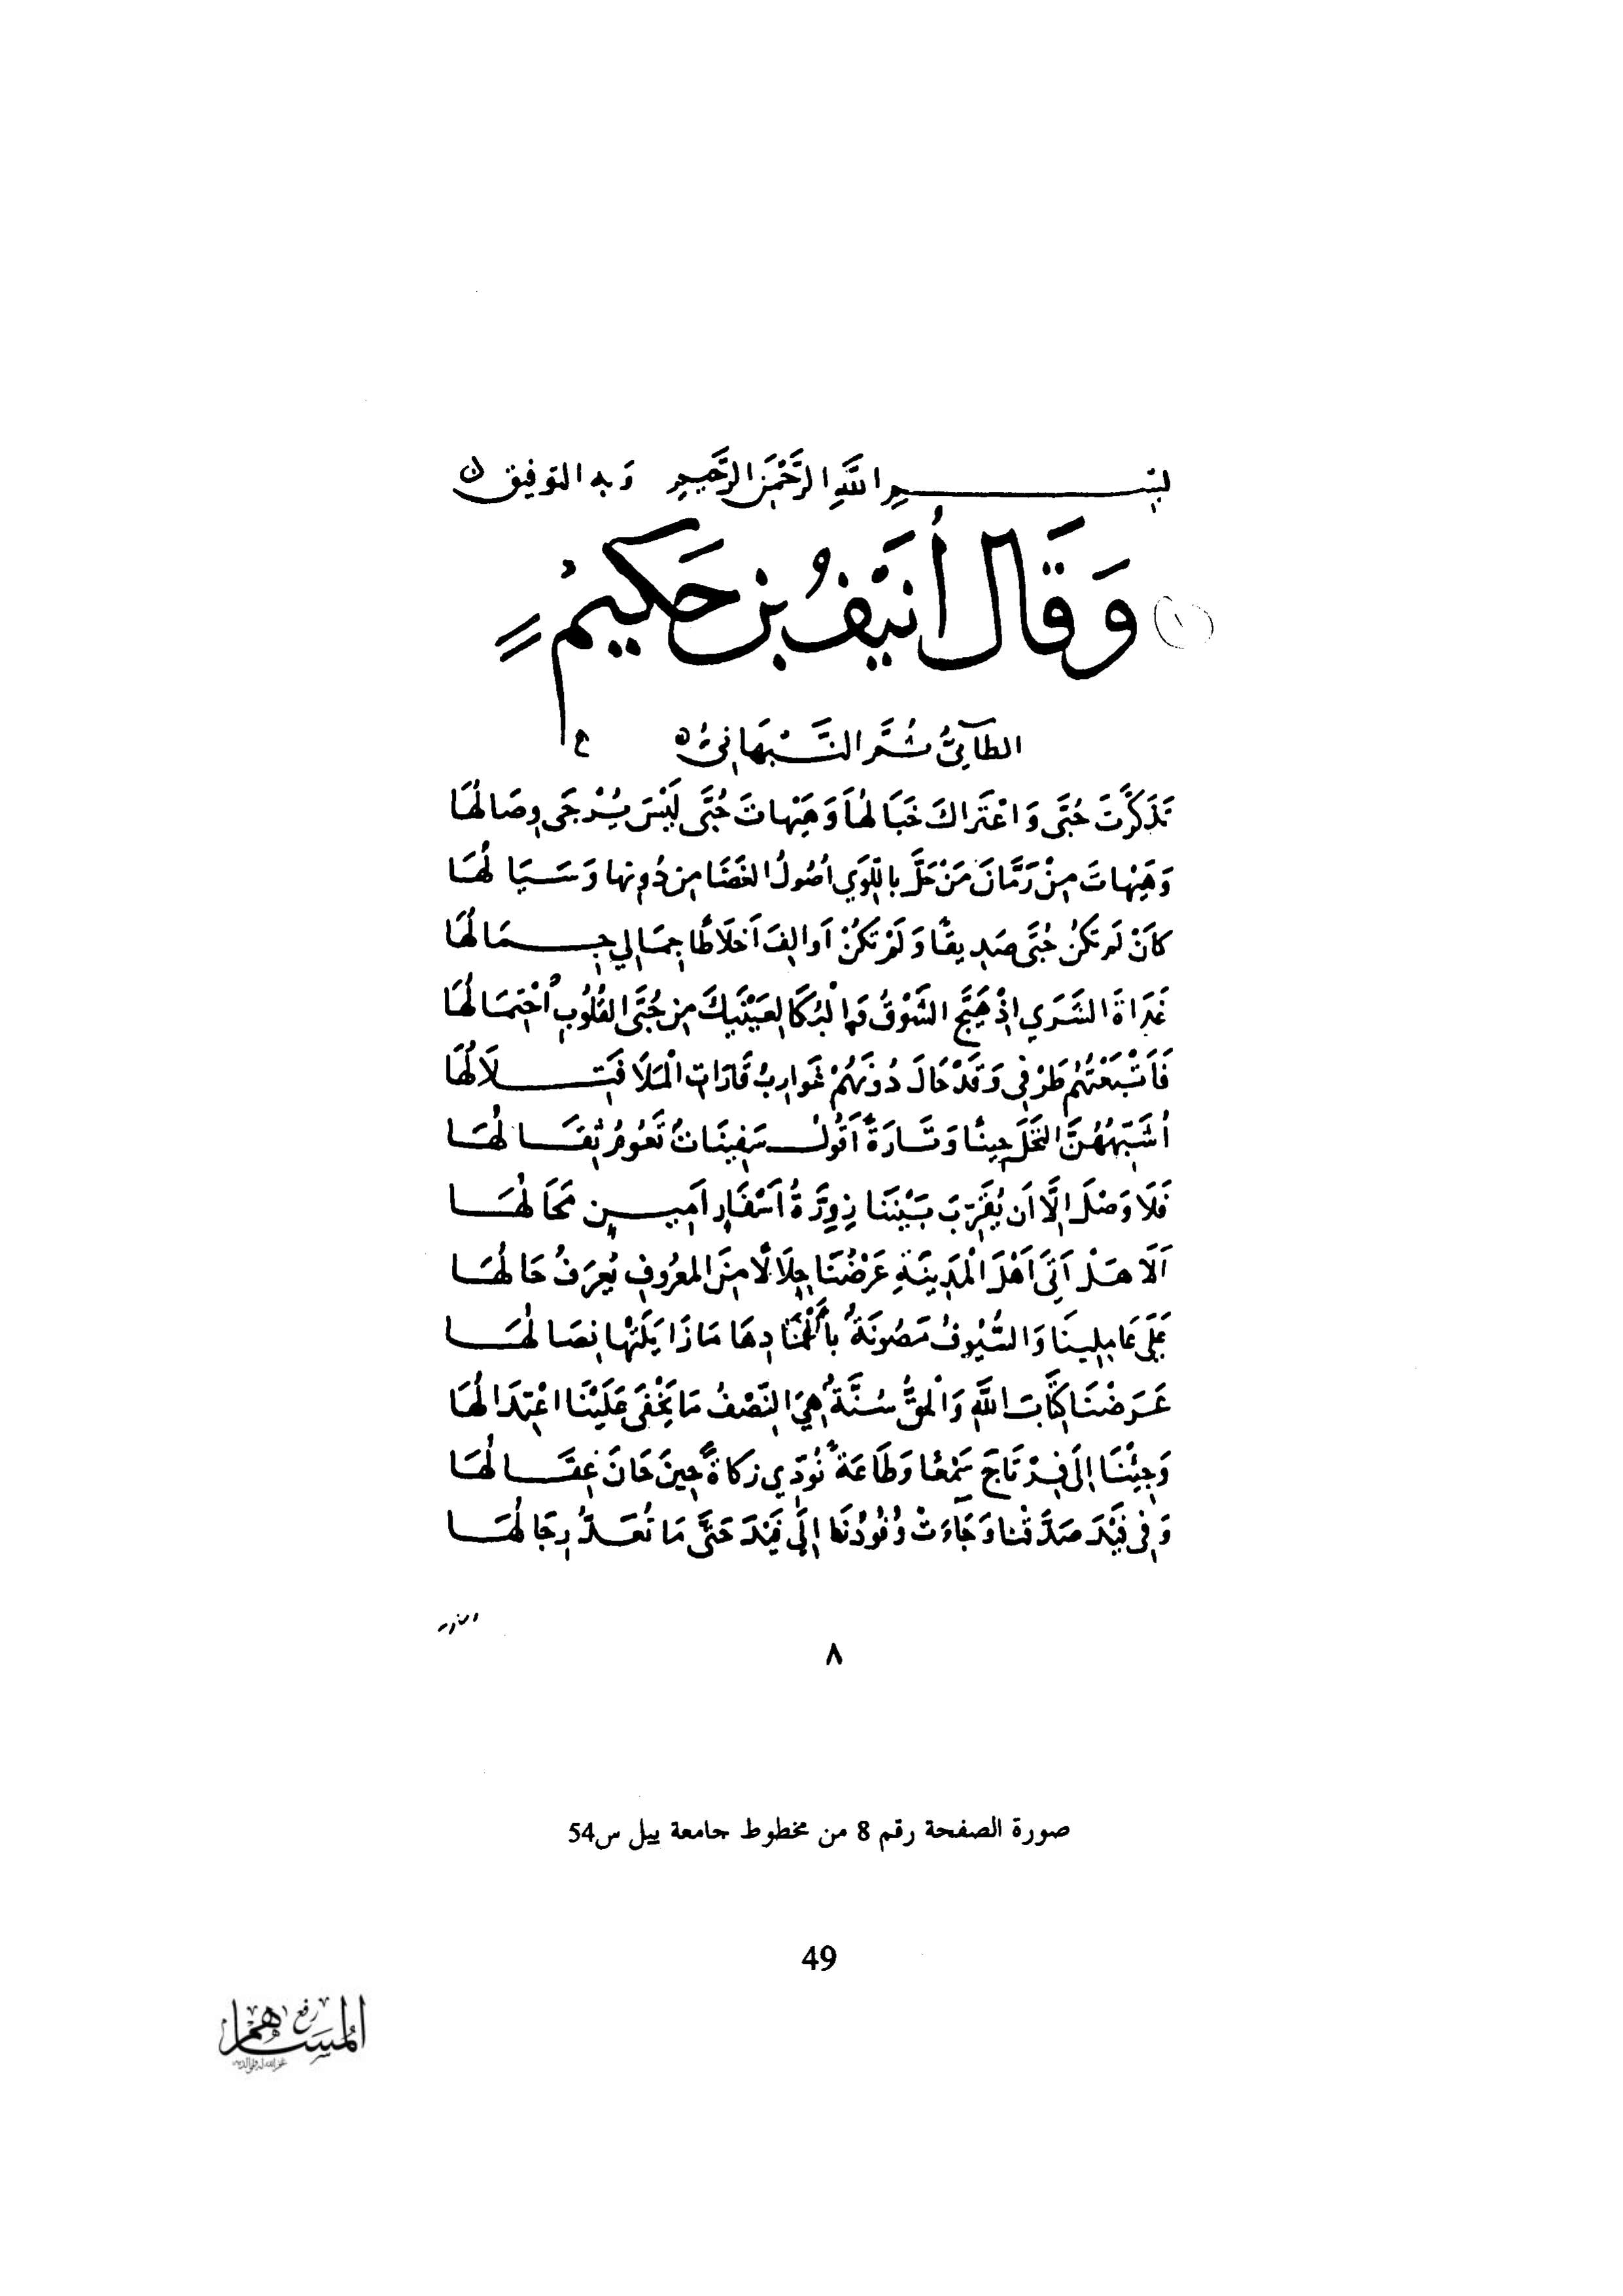 بِسْمِ اللَّهِ الرَّحْمَنِ الرَّحِيمِ وَبِهِ التوفيق
(١) وَقَالَ أُنَيْفُ بنُ حَكِيمٍ
الطائيُّ ثُمَّ النَّبْهَانِيُّ
تَذَكَّرْتَ حُبَّى وَاعْتَرَاكَ خَبَالُهَا وَهَيْهاتَ حُبَّى لَيْسَ يُرْجَى وِصَالُهَا
وَهَيْهاتَ مِنْ رَمَّانَ مَنْ حَلَّ باللِّوَي أصُولُ الغَضَا مِن دُونها وَسَيَالُهَا
كأنْ لَم تَكُنْ حُبَّى صَدِيقًا وَلَمْ تَكُنْ أوالِفَ أخلَاطًا جِمَالِي جِمَالُهَا
غَدَاةَ الشَّرَي إذْ هَيَّجَ الشَّوْقُ فالْبُكَا لِعَيْنَيْكَ مِن حُبَّى القُلُوبِ احْتِمَالُهَا
فَأَتْبَعْتُهُمْ طَرْفِي وَقَدْ حَالَ دُونَهُمْ غوارِبُ قَارَاتِ الْمَلَا فَتِلَالُهَا
أُشَبِّهُهُنَّ النَّخْلَ حِينًا وَتَارَةً أَقُولُ سَفِينَاتٌ تَعُومُ ثِقَالُهَا
فَلَا وَصْلَ إلَّا أن يُقَرِّبَ بَيْنَنَا زِوَرَّةُ أَسْفَارٍ أَمِينٍ مَحَالُهَا
أَلَا هَلْ أَتَى أَهْلَ الْمَدِينَةِ عَرْضُنَا جِلَالًا مِنَ المعرُوفِ يُعرَفُ حَالُهَا
عَلَى عَامِلِينَا وَالسُّيُوفُ مَصُونَةٌ بأغْمَادِهَا مَا زَايَلَتْها نِصَالُهَا
عَرَضْنَا كِتَابَ اللَّهِ وَالْحَقُّ سُنَّةٌ هِيَ النَّصْفُ مَا يَخْفَى عَلَيْنَا اعْتِدَالُهَا
وَجِئْنَا إلَى فِرْتَاجَ سَمْعًا وَطَاعَةً نُؤدِّي زكاةً حِينَ حَانَ عِقَالُهَا
وَفِي فَيْدَ صَدَّقْنا وَجَاءَتْ وُفُودُنَا إلَى فَيْدَ حَتَّى مَا تُعَدُّ رِجَالُهَا
٨
صورة الصفحة رقم 8 من مخطوط جامعة ييل س54
49
رفع المساهم
غفر الله له ولوالديه